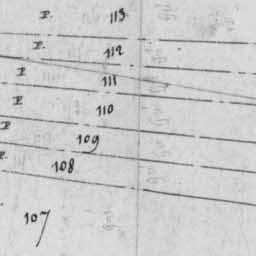 P. 113.
P. 112
P 111
P 110
P 109
P. 108
107